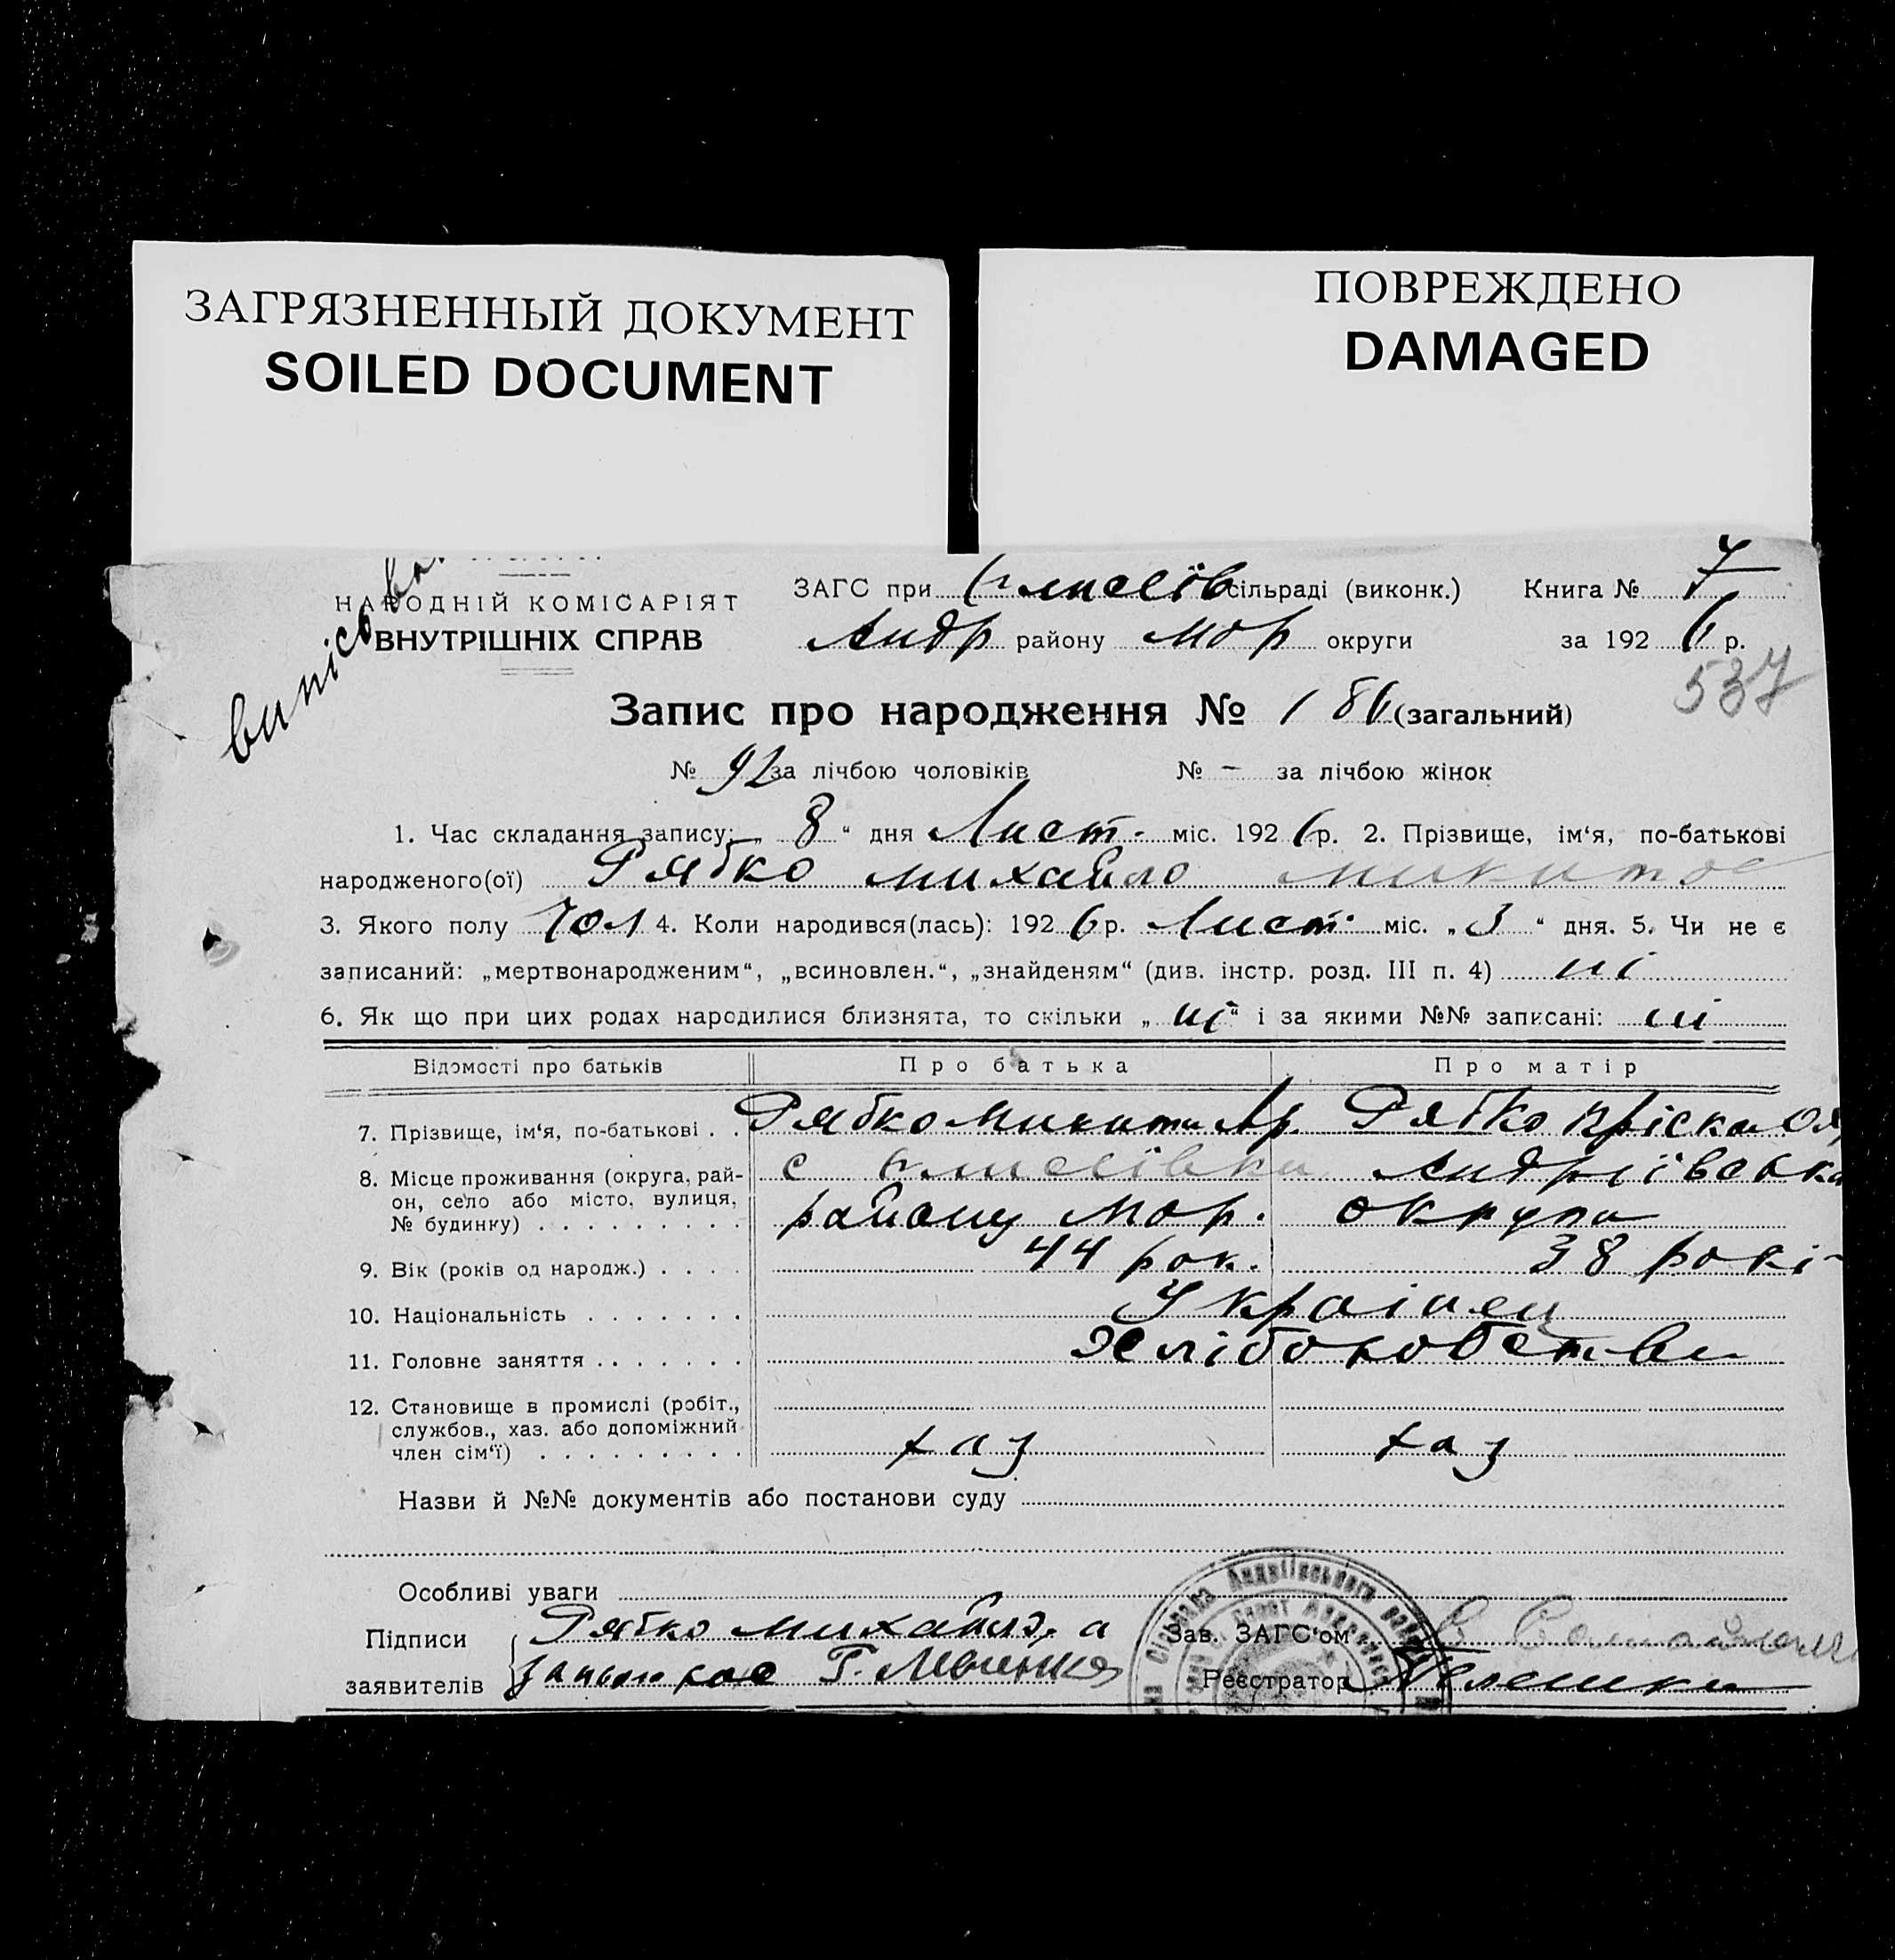 ЗАГРЯЗНЕННЫЙ ДОКУМЕНТ
SOILED DOCUMENT
ПОВРЕЖДЕНО
DAMAGED
НАРОДНІЙ КОМІСАРІЯТ
ВНУТРІШНІХ СПРАВ
ЗАГС при сільраді (виконк.) Книга № 7
Андр району Мар округи за 1926 р.
537
Запис про народження № 186 (загальний)
№ 92 за лічбою чоловіків № – за лічбою жінок
1. Час складання запису: „ 8 “ дня Лист. міс. 1926 р. 2. Прізвище, ім‘я, по-батькові
народженого(ої) Рябко Михайло Микитов
3. Якого полу чол 4. Коли народився(лась): 1926 р. Лист. міс. „ 3 “ дня. 5. Чи не є
записаний: „мертвонародженим“, „всиновлен.“, „знайденям“ (див. інстр. розд. III п. 4) ні
6. Як що при цих родах народилися близнята, то скільки „ ні “ і за якими №№ записані: ні
Відомості про батьків Про батька Про матір
7. Прізвище, ім‘я, по-батькові . . Рябко Микита Рябко Пріська
8. Місце проживання (округа, рай-
он, село або місто, вулиця,
№ будинку) . . . . . . . . .
с Андріївська
району Мар. округа
9. Вік (років од народж.) . . . . 44 рок. 38 рокі
10. Національність . . . . . . . Українец
11. Головне заняття . . . . . . . Хліборобства
12. Становище в промислі (робіт.,
службов., хаз. або допоміжний
член сім‘ї) . . . . . . . . . хаз хаз
Назви й №№ документів або постанови суду
Особливі уваги
Підписи Рябко Михайло, а Зав. ЗАГС‘ом
заявителів Реєстратор